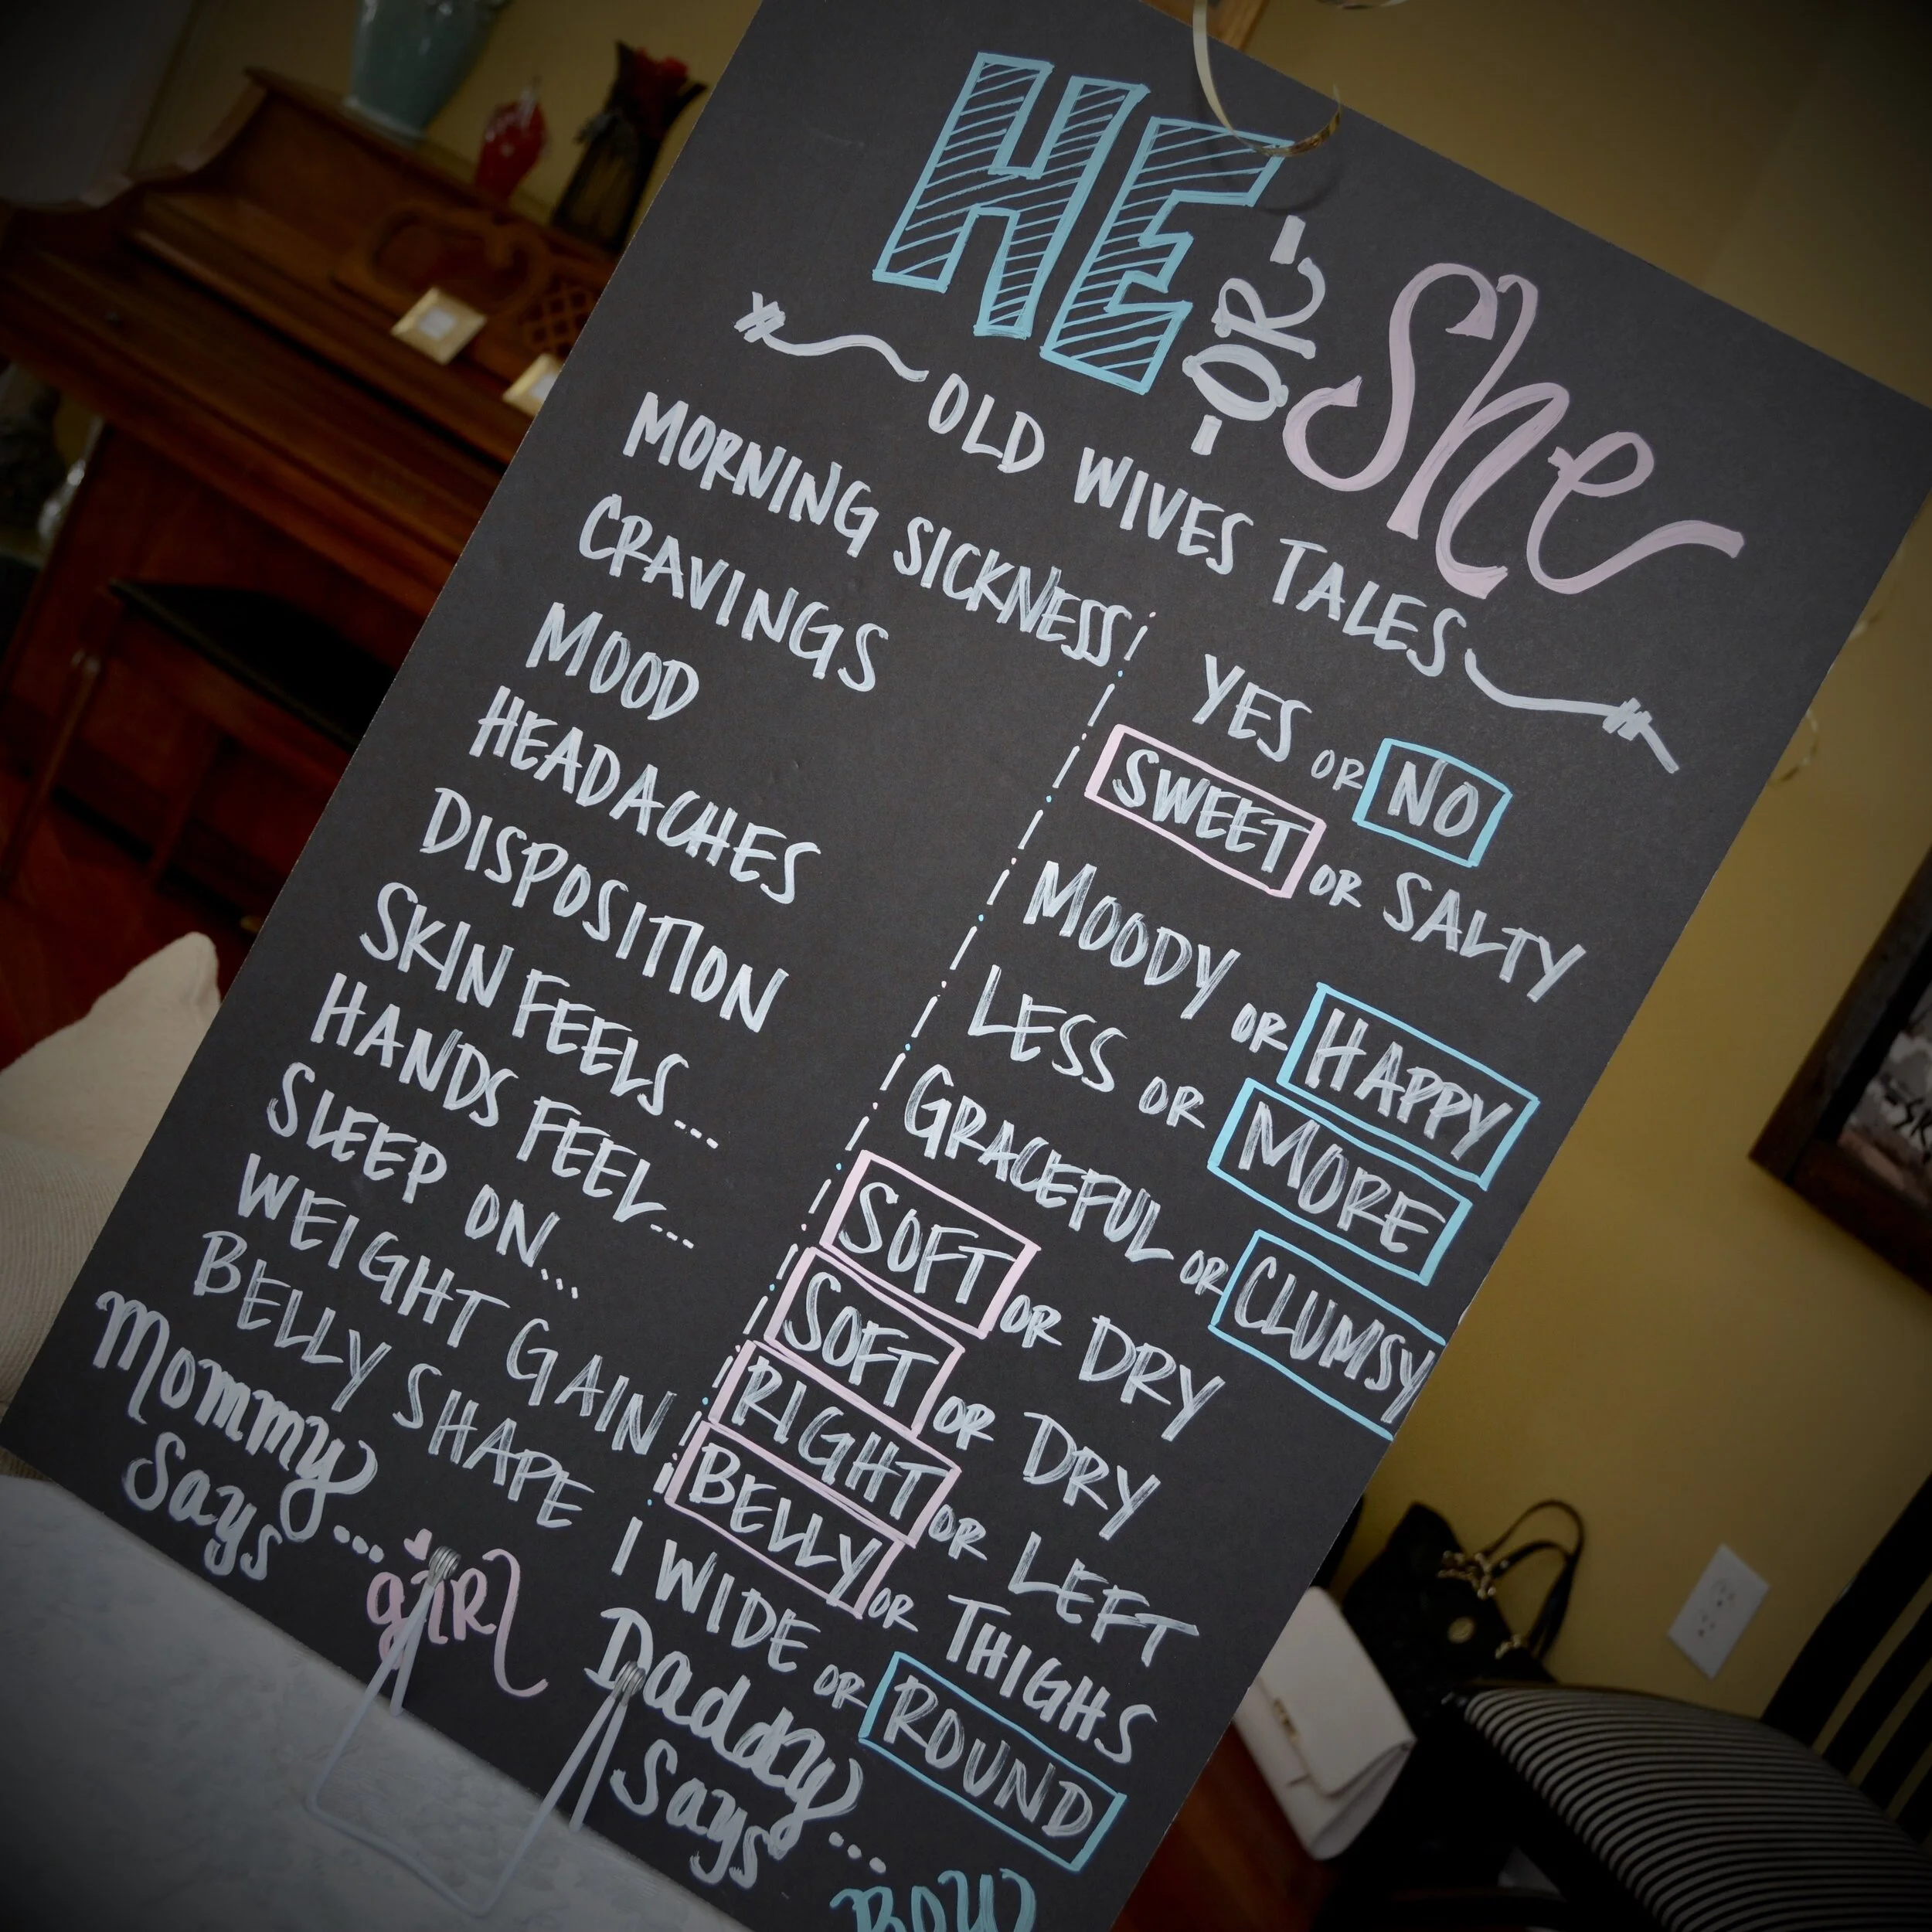 HE -OR- She
OLD WIVES TALES
MORNING SICKNESS YES OR NO
CRAVINGS SWEET OR SALTY
MOOD MOODY OR HAPPY
HEADACHES LESS OR MORE
DISPOSITION GRACEFUL OR CLUMSY
SKIN FEELS... SOFT OR DRY
HANDS FEEL... SOFT OR DRY
SLEEP ON... RIGHT OR LEFT
WEIGHT GAIN BELLY OR THIGHS
BELLY SHAPE WIDE OR ROUND
Mommy Says... girl
Daddy Says... BOY